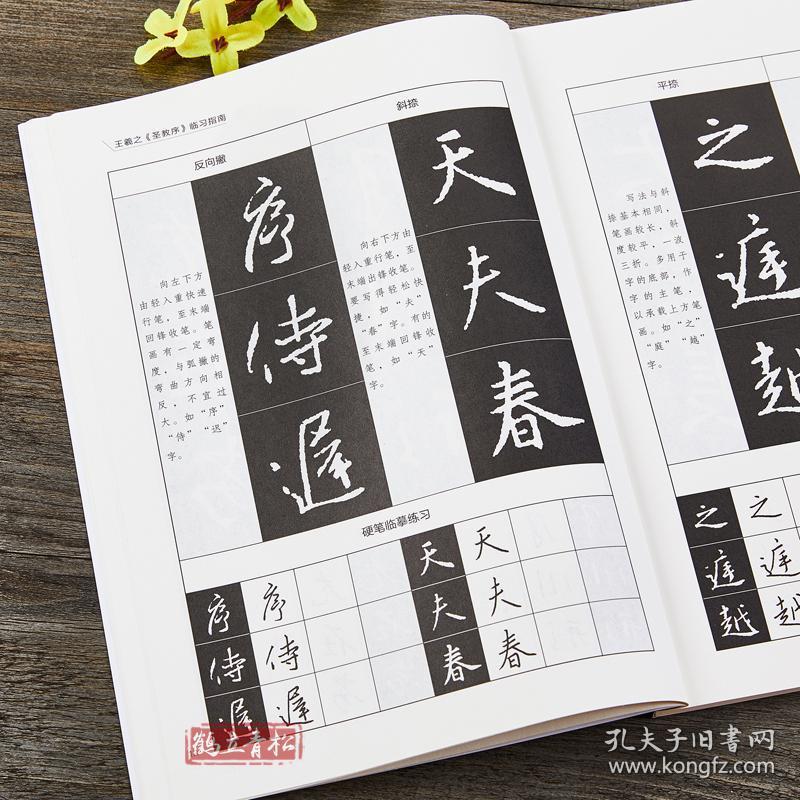 王羲之《圣教序》临习指南
反向撇
向左下方
由轻入重快速
行笔，至末端
回锋收笔。笔
画有一定弯
度，与弧撇的
弯曲方向相
反，不宜过
大。如“序”
“侍”“迟”
字。
序
侍
遲
斜捺
向右下方由
轻入重行笔，至
末端出锋收笔。
要写得轻松快
捷，如“夫”
“春”字。有的
至末端回锋收
笔，如“天”
字。
天
夫
春
硬笔临摹练习
序 序 天 天
侍 侍 夫 夫
遲 遲 春 春
平捺
写法与斜
捺基本相同，
笔画较长，斜
度较平，一波
三折。多用于
字的底部，作
字的主笔，
以承载上方笔
画。如“之”
“庭”“越”
字。
之
庭
越
之 之
庭 庭
越 越
鹤立青松
孔夫子旧書网
www.kongfz.com